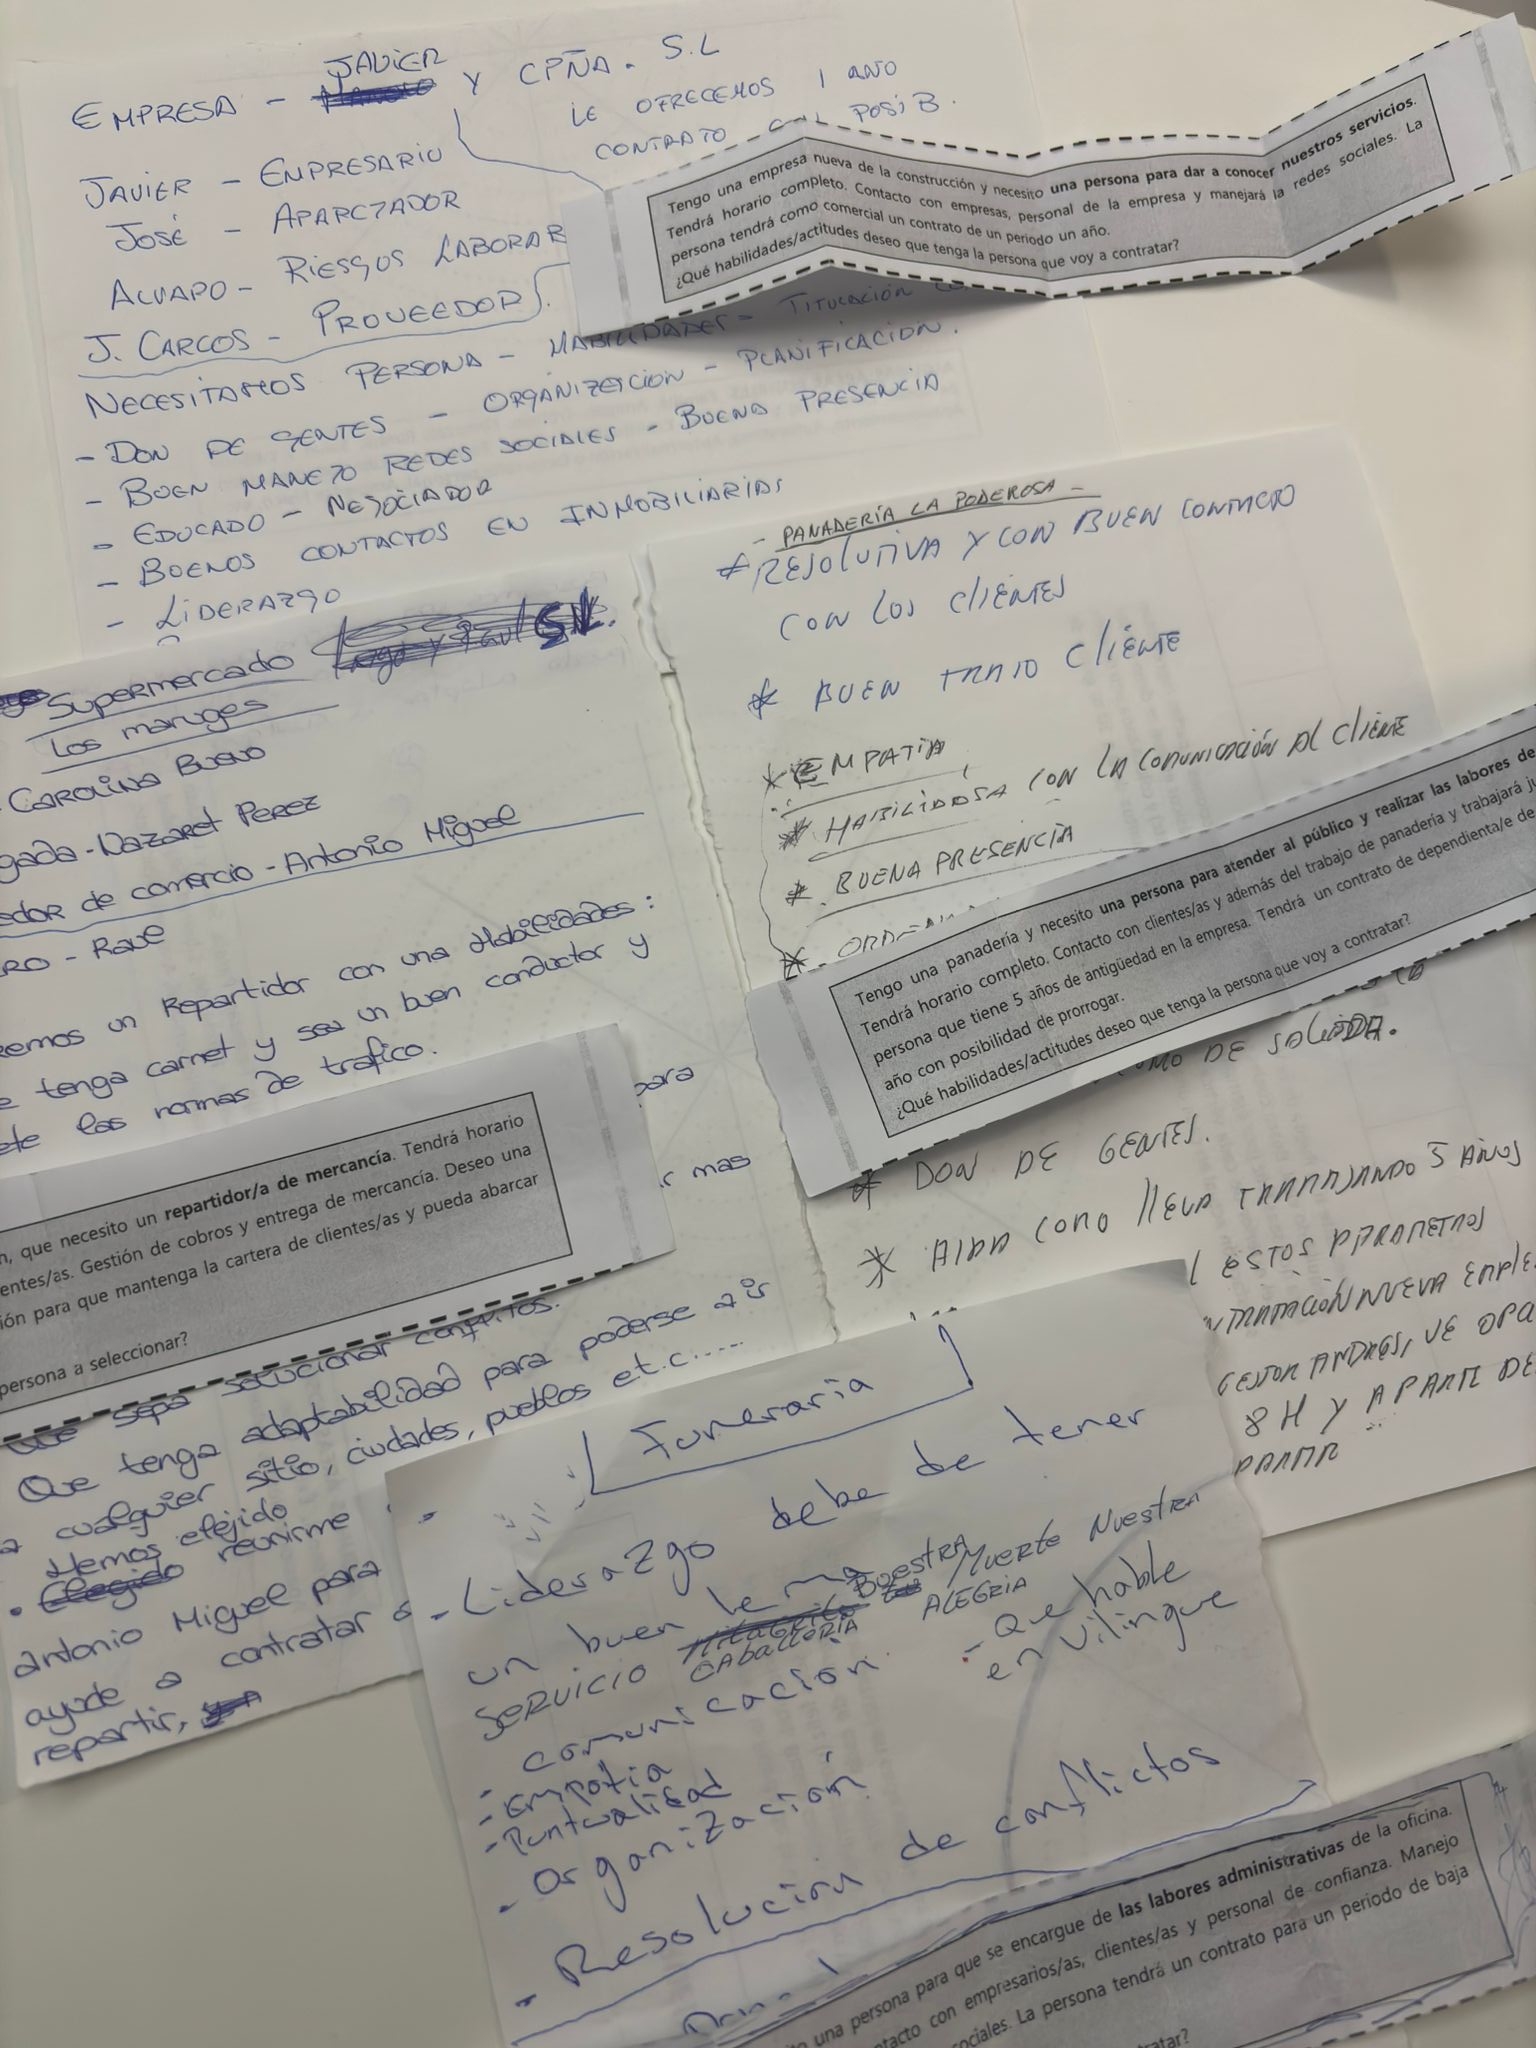 JAVIER
EMPRESA - Y CPÑA. S.L
LE OFRECEMOS 1 AÑO
CONTRATO CON POSIB.
JAVIER - EMPRESARIO
JOSÉ - APAREJADOR
ALVARO - RIESGOS LABORAB
J. CARLOS - PROVEEDOR
NECESITAMOS PERSONA - HABILIDADES - TITULACIÓN
- DON DE GENTES - ORGANIZACION - PLANIFICACION.
- BUEN MANEJO REDES SOCIALES - BUENA PRESENCIA
- EDUCADO - NEGOCIADOR
- BUENOS CONTACTOS EN INMOBILIARIAS
- LIDERAZGO
Tengo una empresa nueva de la construcción y necesito una persona para dar a conocer nuestros servicios.
Tendrá horario completo. Contacto con empresas, personal de la empresa y manejará la redes sociales. La
persona tendrá como comercial un contrato de un periodo un año.
¿Qué habilidades/actitudes deseo que tenga la persona que voy a contratar?
Supermercado SL.
Los maruges
CAROLINA BUENO
gada - Nazaret Perez
edor de comercio - Antonio Miguel
RO - Raul
remos un Repartidor con una Habilidades:
e tenga carnet y sea un buen conductor y
ete las normas de trafico.
para
r mas
n, que necesito un repartidor/a de mercancía. Tendrá horario
entes/as. Gestión de cobros y entrega de mercancía. Deseo una
ión para que mantenga la cartera de clientes/as y pueda abarcar
persona a seleccionar?
Que sepa solucionar conflitos.
Que tenga adaptabilidad para poderse a ir
a cualquier sitio, ciudades, pueblos etc.....
Hemos elejido
. Elegido reunirme
antonio Miguel para
ayude a contratar a
repartir,
- PANADERÍA LA PODEROSA -
* RESOLUTIVA Y CON BUEN CONTACTO
CON LOS CLIENTES
* BUEN TRATO CLIENTE
* EMPATIA
* HABILIDOSA CON LA COMUNICACIÓN AL CLIENTE
* BUENA PRESENCIA
*
Tengo una panadería y necesito una persona para atender al público y realizar las labores de
Tendrá horario completo. Contacto con clientes/as y además del trabajo de panadería y trabajará ju
persona que tiene 5 años de antigüedad en la empresa. Tendrá un contrato de dependienta/e de
año con posibilidad de prorrogar.
¿Qué habilidades/actitudes deseo que tenga la persona que voy a contratar?
COMO DE SALIDA.
* DON DE GENTES.
* AIDA COMO LLEVA TRABAJANDO 5 AÑOS
ESTOS PARAMETROS
NTRATACIÓN NUEVA EMPLE
GESTOR ANDRES, VE OPO
8 H Y APARTE DE
PARTIR
Funeraria
- Liderazgo debe de tener
un buen lema BUESTRA MUERTE NUESTRA
ALEGRIA
SERVICIO CABALLERIA
- Que hable
en vilingue
- comunicación
- Empatia
- Puntualidad
- Organización
- Resolución de conflictos
ito una persona para que se encargue de las labores administrativas de la oficina.
ntacto con empresarios/as, clientes/as y personal de confianza. Manejo
sociales. La persona tendrá un contrato para un periodo de baja
ratar?